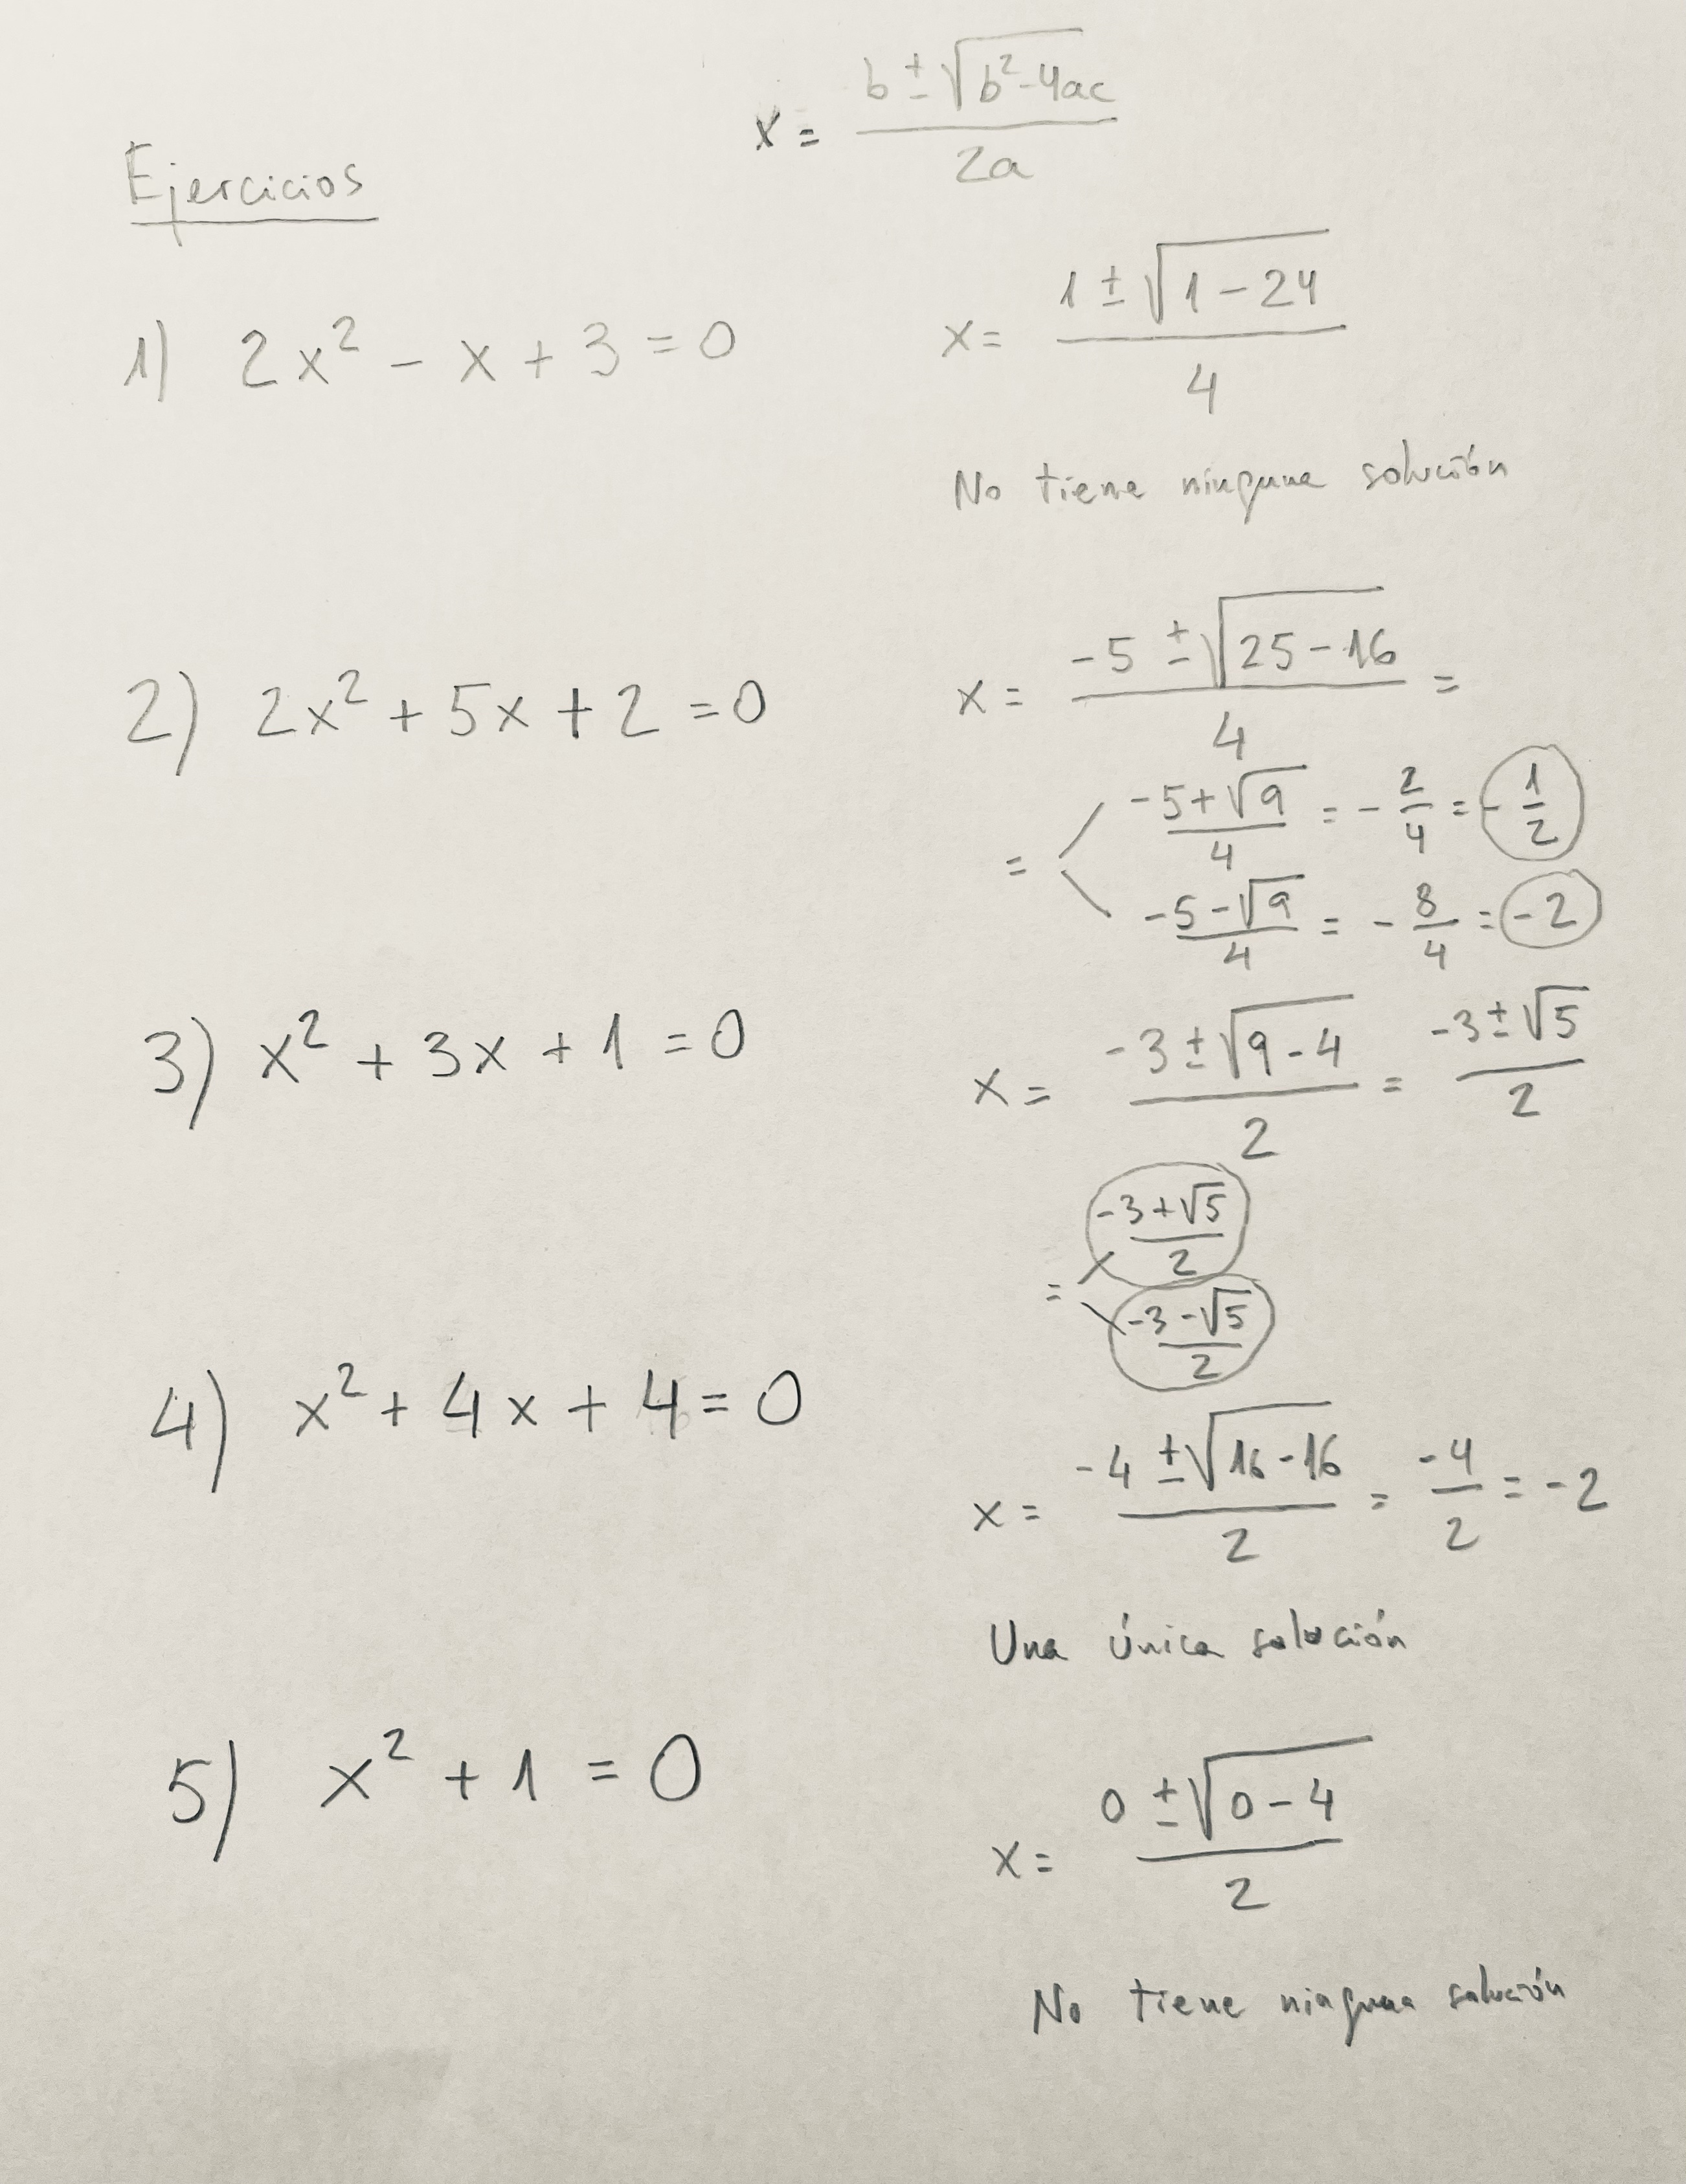 x = (b ± √(b² - 4ac)) / 2a
Ejercicios
1) 2x² - x + 3 = 0
x = (1 ± √(1 - 24)) / 4
No tiene ninguna solución
2) 2x² + 5x + 2 = 0
x = (-5 ± √(25 - 16)) / 4 =
= (-5 + √9) / 4 = - 2/4 = - 1/2
(-5 - √9) / 4 = - 8/4 = -2
3) x² + 3x + 1 = 0
x = (-3 ± √(9 - 4)) / 2 = (-3 ± √5) / 2
= (-3 + √5) / 2
(-3 - √5) / 2
4) x² + 4x + 4 = 0
x = (-4 ± √(16 - 16)) / 2 = -4/2 = -2
Una única solución
5) x² + 1 = 0
x = (0 ± √(0 - 4)) / 2
No tiene ninguna solución